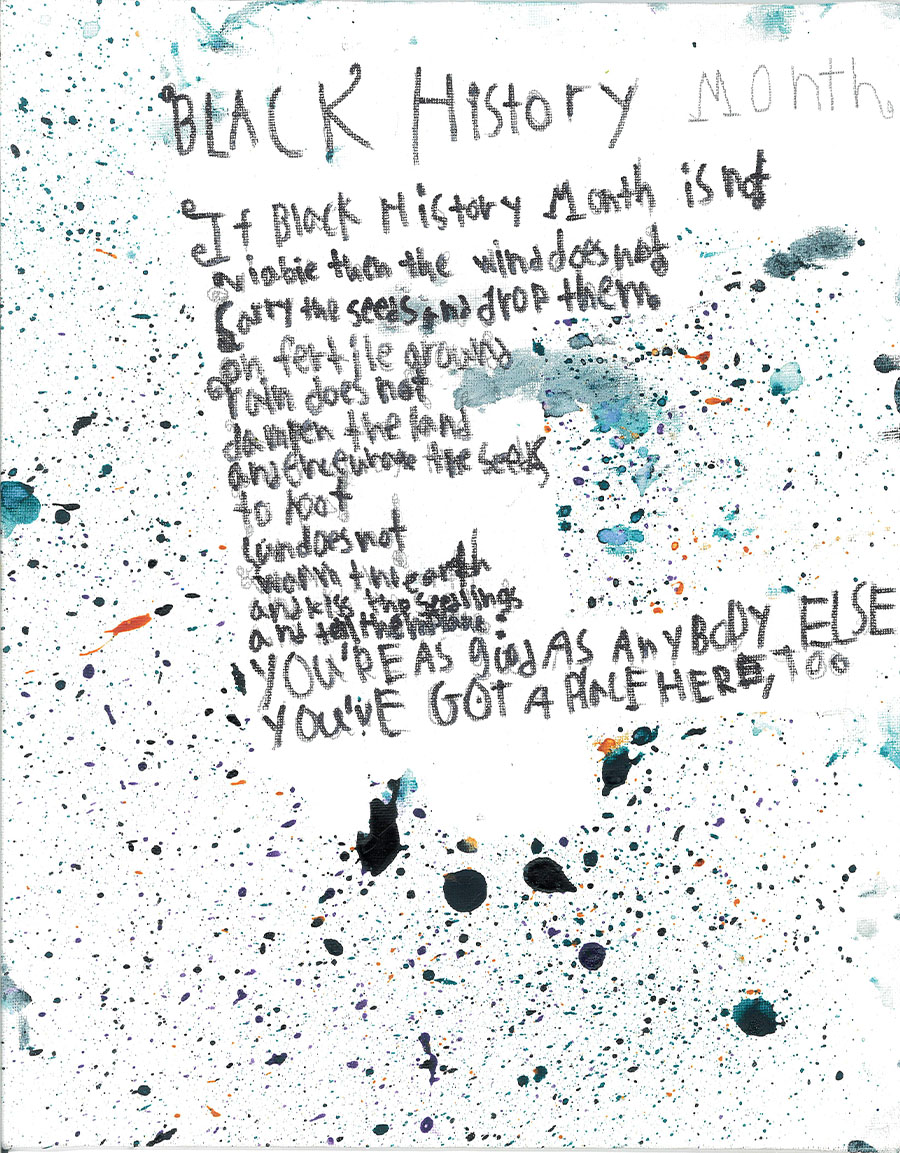 BLACK History Month
If Black History Month is not
viable then the wind does not
carry the seeds and drop them
on fertile ground
rain does not
dampen the land
and encourage the seeds
to root
sun does not
warm the earth
and kiss the seedlings
and tell them
YOU'RE AS good AS ANYBODY ELSE
YOU'VE GOT A PLACE HERE, TOO